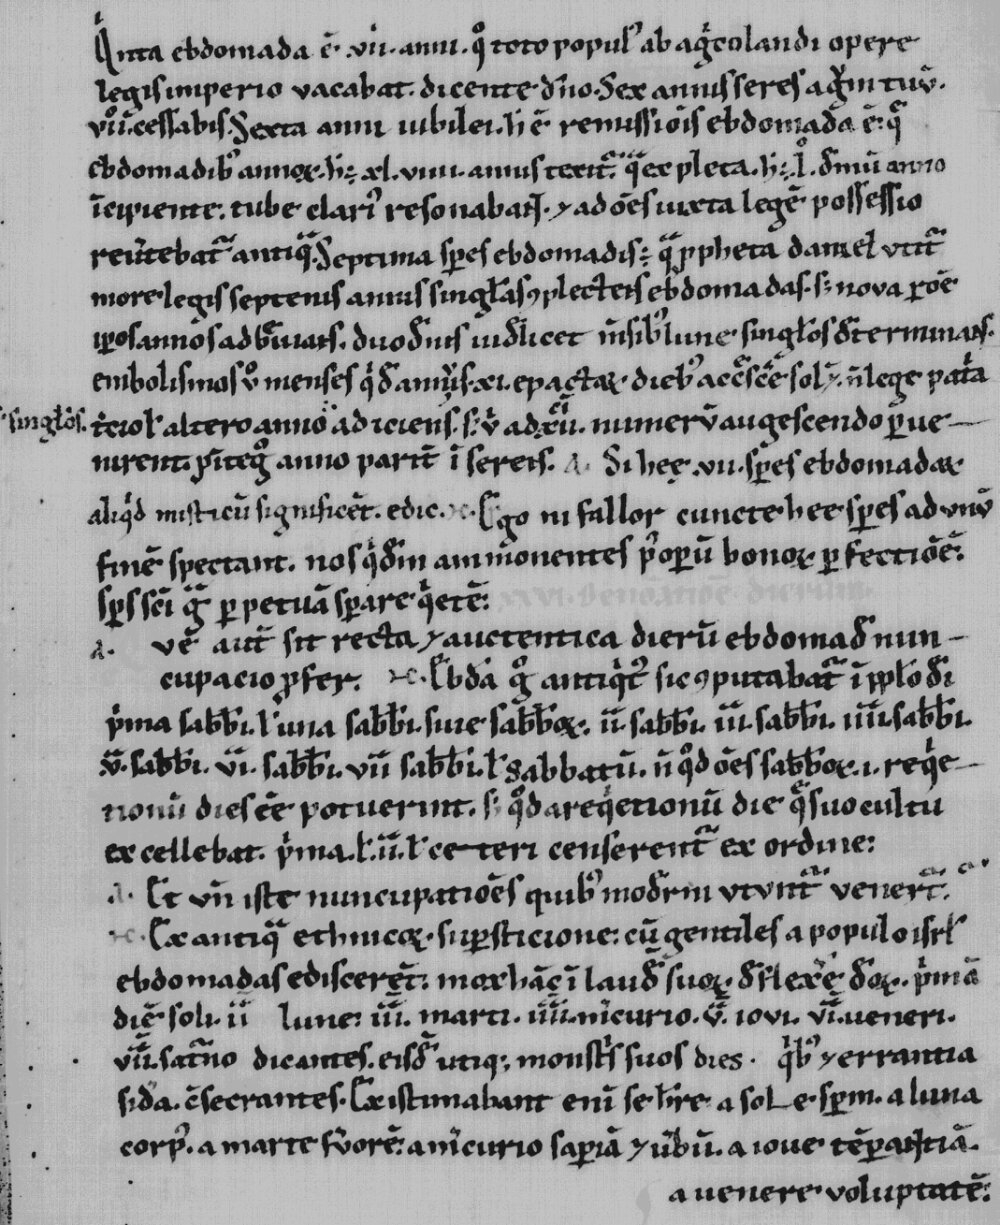 Q̇nta ebdomada ē· vii· anni· qͦ toto popul᷒ ab ag̍colandi opere
legis imperio vacabat· dicente dn̄o· Sex annis seres ag̍m tuū·
viiͦ· cessabis· Sexta anni iubilei· h̄ ē remissiōis ebdomada ē· qᷓ
ebdomadib᷒ annoꝝ· h̄· xl· viiii· annis texit᷑· qᷓ expleta· h̄· lͦ· dm̄ū anno
īcipiente· tube clari᷒ resonabant· ⁊ ad ōēs iuxta legē possessio
reūtebat᷑ antiqᷓ· Septima sp̄es ebdomadis· qᷓ ꝓpheta daniel utit᷑
more legis septenis annis singl̄as ꝯplecteis ebdomadas· s; nova rōē
ip̄os annos adb̄uians· duodn̄is uidl̄icet m̄sib᷒ lune singl̄os dt̄erminans·
embolismos ū menses q̍ d̄ annuis· xi· epactaꝝ dieb᷒ accr̄scē solꝫ· n̄ lege pat̍a
singl̄os· t̄cio ł altero anno adiciens· s; ū ad xiiͨī· numerū augescendo ꝑue-
nirent· pīteq̨ͦ anno parit̄ īsereis· Δ· Si hee· vii· sp̄es ebdomadaꝝ
aliq̍d misticū significēt· edic· M· Ego ni fallor cuncte hee sp̄es ad unū
finē spectant· nos q̍dm̄ ammonentes p᷒ opeꝝ bonoꝝ ꝑfectiōē·
sp̄s sc̄i gᷓ ꝑpetuā sp̄are q̍etē·
Δ· vē aut̄ sit recta ⁊ auctentica dierū ebdomad̄ nun-
cupacio ꝓfer· M· Ebd̄a gͦ antiq̍t᷒ sic ꝯputabat᷑ ī pp̄lo dī
p̍ma sab̄bi· ł una sab̄bi· siue sab̄boꝝ· ii· sab̄bi· iii· sab̄bi· iiii· sab̄bi·
v· sab̄bi· vi· sab̄bi· vii sab̄bi· ł sabbatū· n̄ qͦd ōēs sab̄boꝝ· i· req̍e-
tionū dies ēē potuerint· s; qͦd a req̍etionū die qᷓ suo cultu
excellebat· p̍ma· ł· ii· ł ceteri censerent᷑ ex ordine·
Δ· Et uñ iste nuncupatiōēs quib᷒ modn̄i utunt᷑ venert᷑·
M· Ex antiqᷓ ethnicoꝝ· suꝑsticione· cū gentiles a populo isrł
ebdomadas ediscerēt· mox hāc ī laudē suoꝝ dēflexēr dōꝝ· p̍mā
diē soli· ii lune· iii· marti· iiii· m̄curio· v· iovi· vi· ueneri·
vii· sat᷑no dicantes· eisdē utiq; monstris suos dies· q̍b᷒ ⁊ errantia
sid̄a· c̄secrantes· Existimabant enī se h̄re a sole sp̄m· a luna
corp᷒· a marte fuorē· a m̄curio sap̄iā ⁊ ūbū· a ioue tēꝑantiā·
a uenere voluptatē·